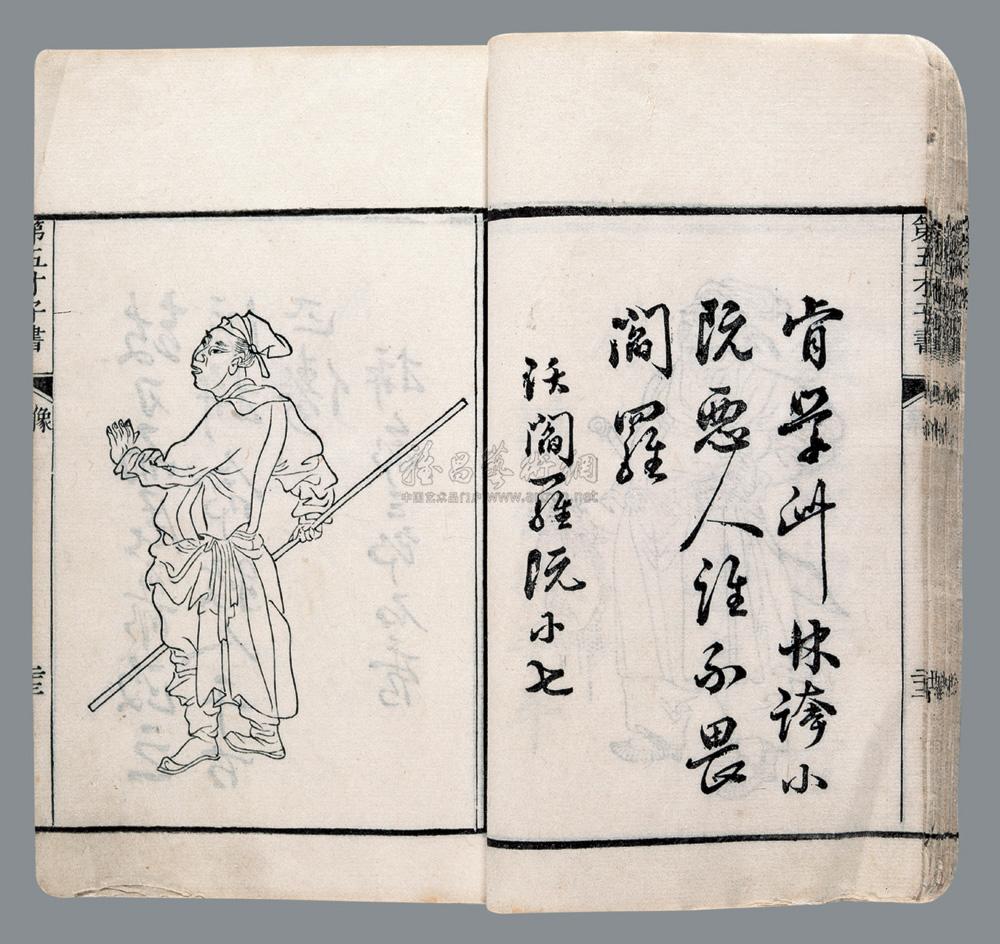 第五才子書
肯学竹林誇小
阮惡人誰不畏
閻羅
活閻羅阮小七
第五才子書
像
雅昌藝術網
中国艺术品门户www.artron.net